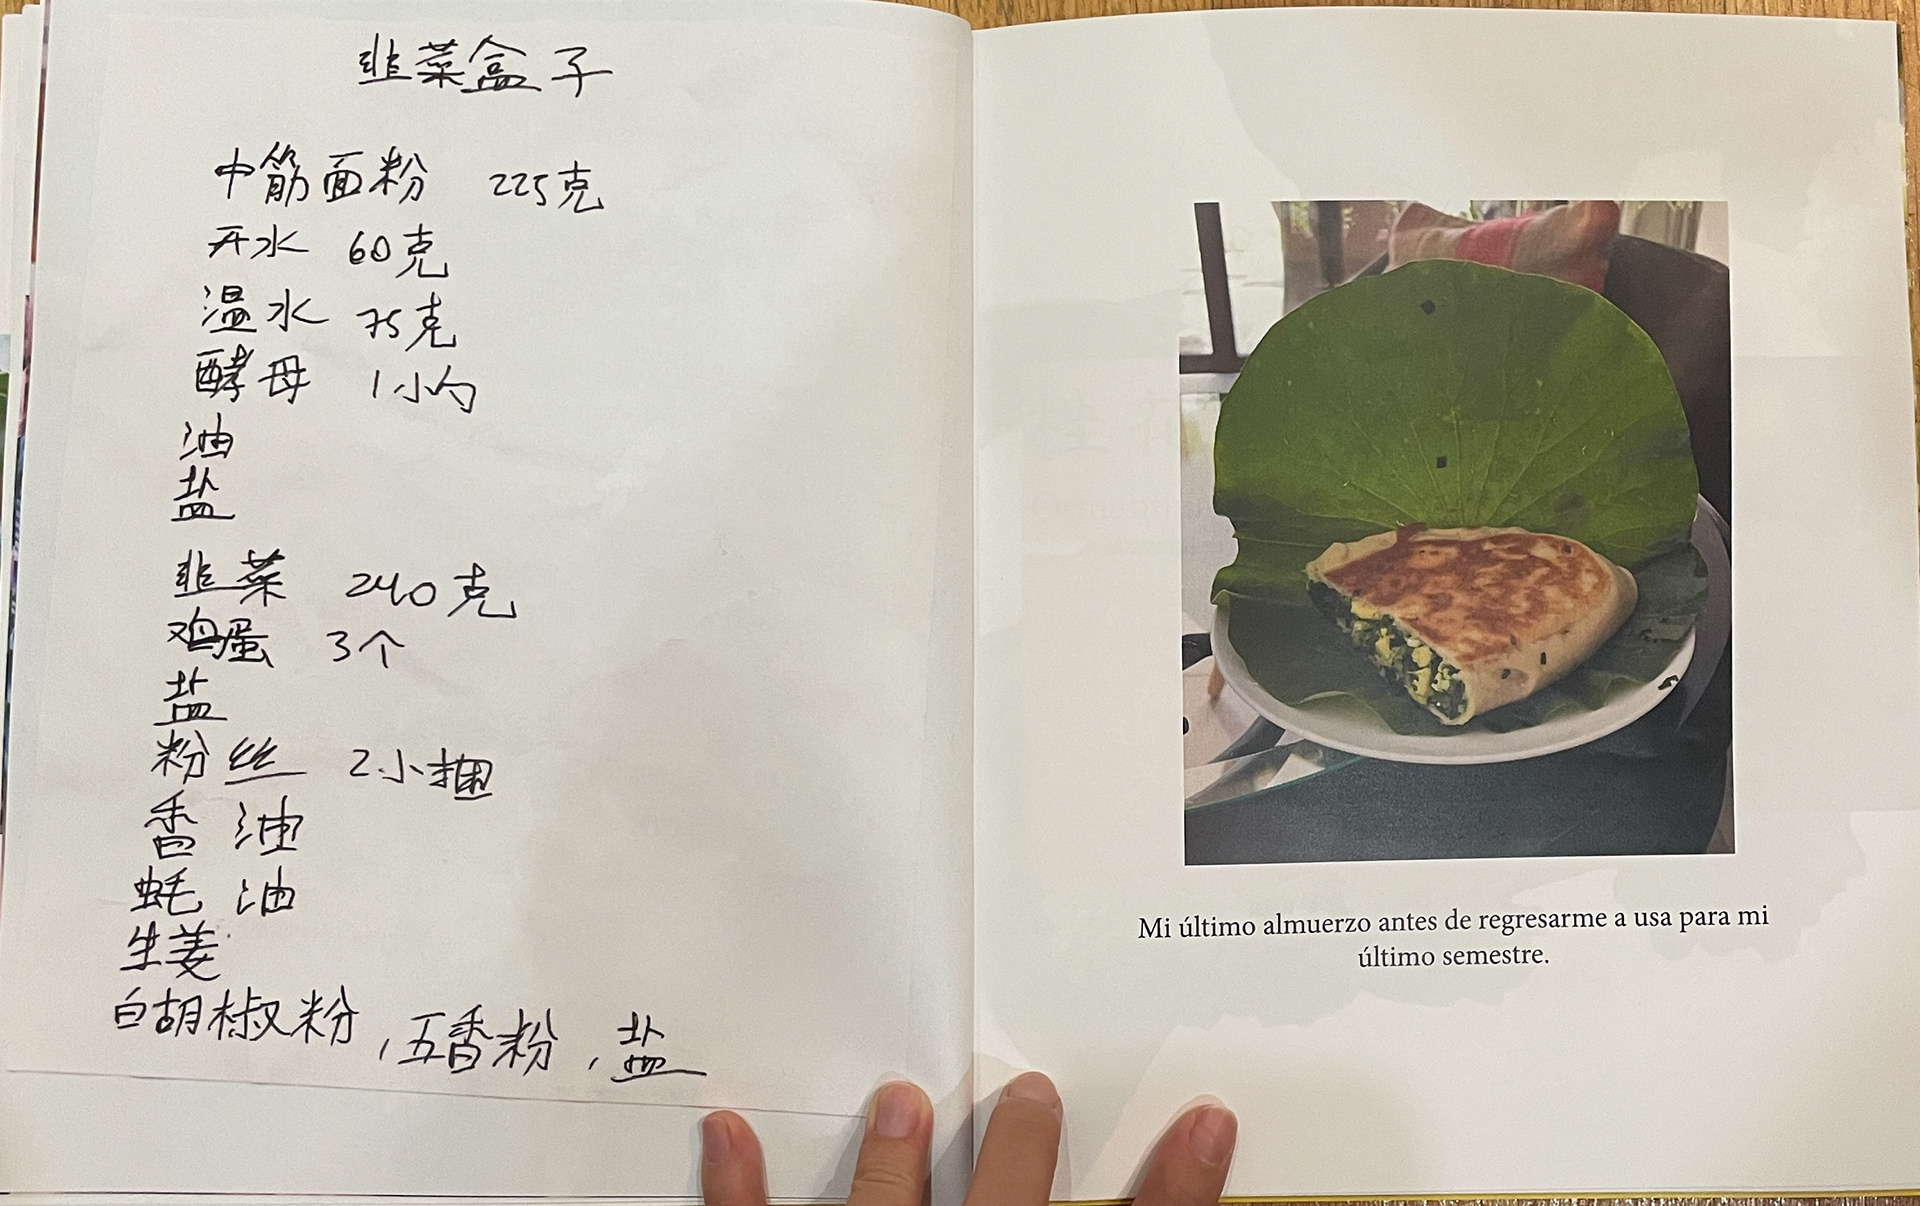 韭菜盒子
中筋面粉 225克
开水 60克
温水 75克
酵母 1小勺
油
盐
韭菜 240克
鸡蛋 3个
盐
粉丝 2小捆
香油
蚝油
生姜
白胡椒粉,五香粉,盐
Mi último almuerzo antes de regresarme a usa para mi
último semestre.